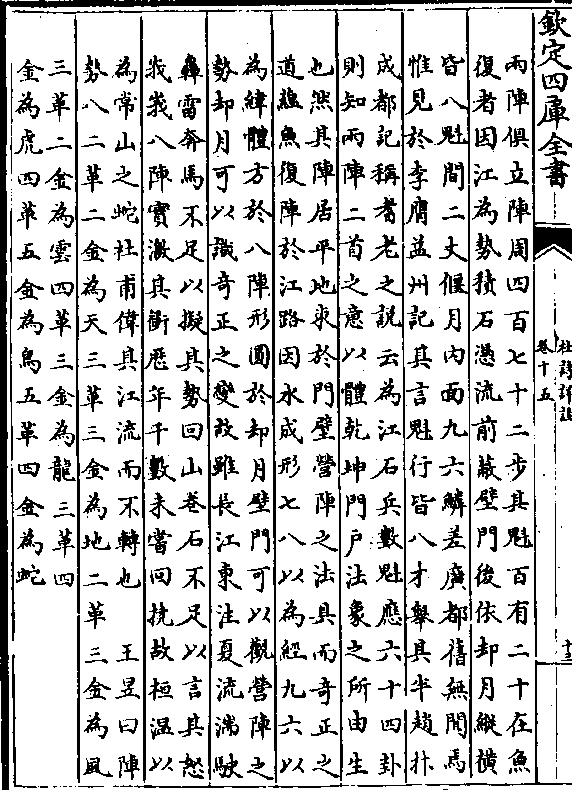 欽定四庫全書
杜詩詳註
卷十五
兩陣俱立陣周四百七十二步其魁百有二十在魚
復者因江為勢積石憑流前蔽壁門後依却月縱橫
皆八魁間二丈偃月内面九六鱗差廣都舊無聞焉
惟見於李膺益州記其言魁行皆八才舉其半趙抃
成都記稱耆老之說云為江石兵數魁應六十四卦
則知兩陣二首之意以體乾坤門戶法象之所由生
也然其陣居平地束於門壁營陣之法具而奇正之
道蘊魚復陣於江路因水成形七八以為經九六以
為緯體方於八陣形圓於却月壁門可以觀營陣之
勢却月可以識奇正之變故雖長江東注夏流湍駛
轟雷奔馬不足以擬其勢回山卷石不足以言其怒
峩峩八陣實激其衝歷年千數未嘗回撓故桓溫以
為常山之蛇杜甫偉其江流而不轉也　王昱曰陣
勢八二革二金為天三革三金為地二革三金為風
三革二金為雲四革三金為龍三革四
金為虎四革五金為鳥五革四金為蛇